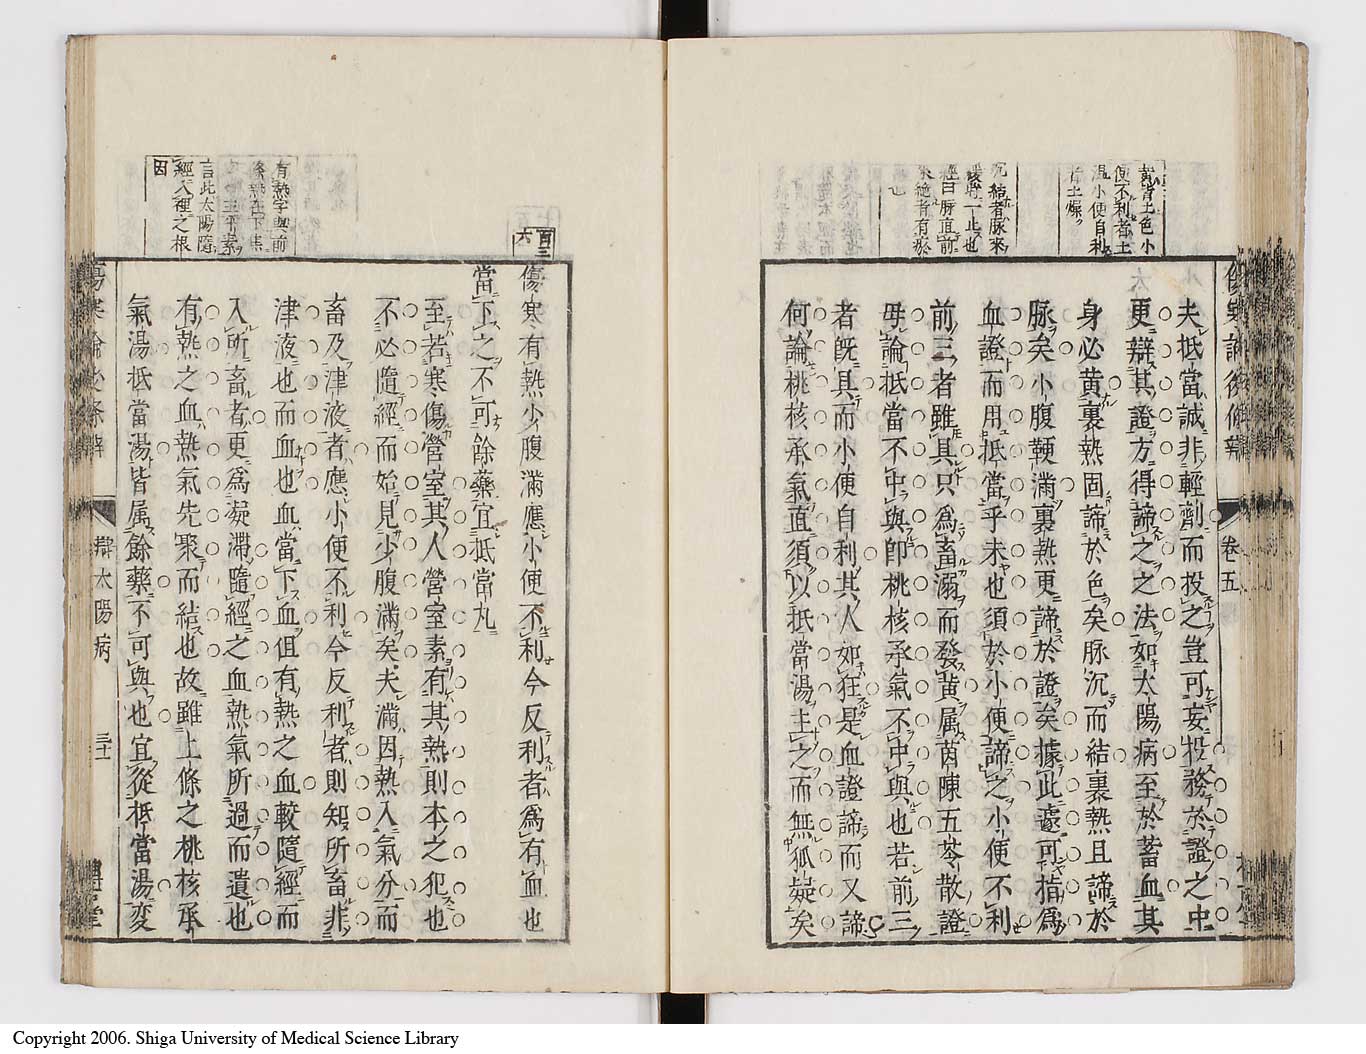 黃者土色小
便不利者土
濕小便自利
者土燥
沉結者脉來
緩時一止也
經曰脐直前
來絶者有瘀
也
夫抵當誠非輕劑而投之豈可妄投務於證之中
更辯其證方得諦之之法如太陽病至於蓄血其
身必黃裏熱固諦於色矣脉沉而結裏熱且諦於
脉矣小腹鞕滿裏熱更諦於證矣據此遽可指爲
血證而用抵當乎未也須於小便諦之小便不利
前三者雖具只爲畜溺而發黃属茵陳五苓散證
毋論抵當不中與卽桃核承氣不中與也若前三
者旣具而小便自利其人如狂是血證諦而又諦
何論桃核承氣直須以抵當湯主之而無狐疑矣
卷五
百三
六
有熱字與前
條熱在下焦
言此太陽隨
經入裡之根
因
傷寒有熱少腹滿應小便不利今反利者爲有血也
當下之不可餘藥宜抵當丸
至若寒傷營室其人營室素有其熱則本之犯也
不必隨經而始見少腹滿矣夫滿因熱入氣分而
畜及津液者應小便不利今反利者則知所畜非
津液也而血也血當下血但有熱之血較隨經而
入所畜者更爲凝滯隨經之血熱氣所過而遺也
有熱之血熱氣先聚而結也故雖上條之桃核承
氣湯抵當湯皆属餘藥不可與也宜從抵當湯变
傷寒論後條辨
辯太陽病
三十一
Copyright 2006. Shiga University of Medical Science Library